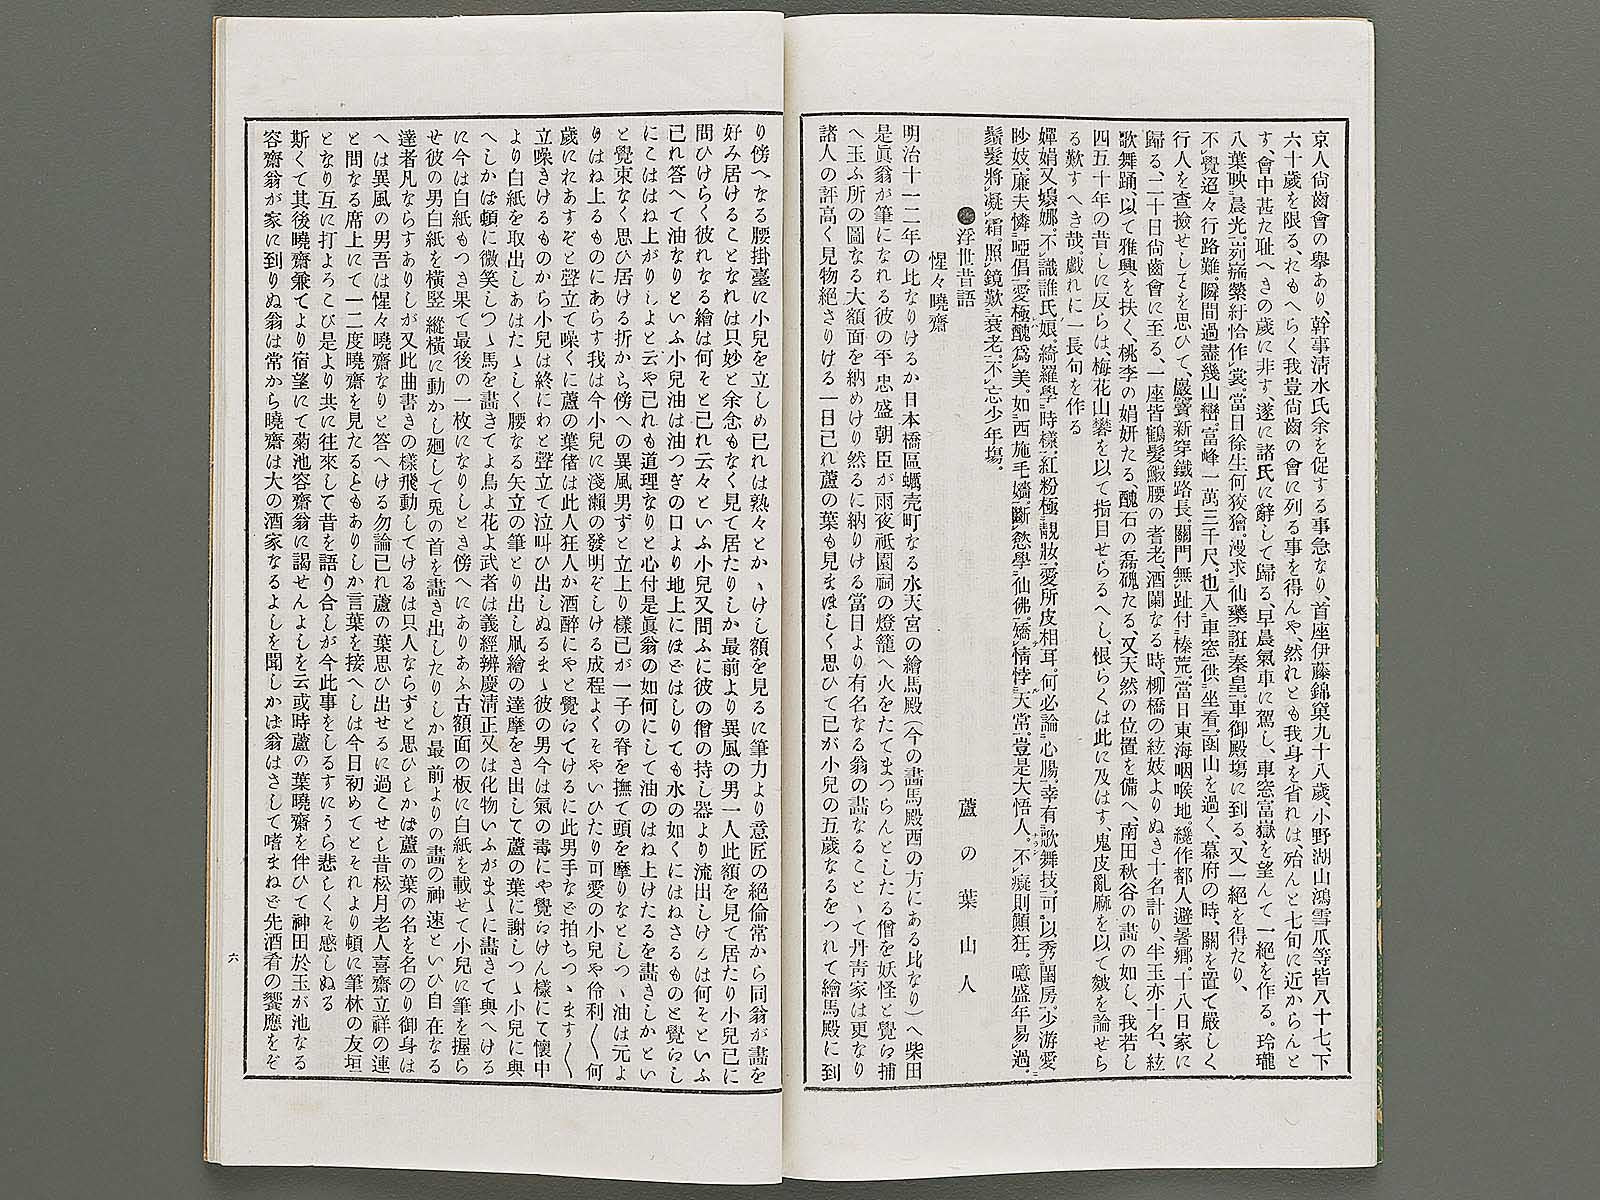 京人尙齒會の擧あり、幹事淸水氏余を促する事急なり、首座伊藤錦窠九十八歲、小野湖山鴻雪爪等皆八十七、下
六十歲を限る、たもへらく我豈尙齒の會に列る事を得んや、然れとも我身を省れは、殆んと七旬に近からんと
す、會中甚た耻へきの歲に非す、遂に諸氏に辭して歸る、早晨氣車に駕し、車窓富嶽を望んて一絕を作る。玲瓏
八葉映晨光。列縈紆恰作裳。當日徐生何狡獪。漫求仙藥誑秦皇。車御殿塲に到る、又一絕を得たり、
不覺迢々行路難。瞬間過盡幾山巒。富峰一萬三千尺。也入車窓供坐看。函山を過く、幕府の時、關を置て嚴しく
行人を査檢せしとを思ひて、巖竇新穿鐵路長。關門無趾付榛荒。當日東海咽喉地。纔作都人避暑鄕。十八日家に
歸る、二十日尙齒會に至る、一座皆鶴髮鮐腰の耆老、酒闌なる時、柳橋の絃妓よりぬき十名計り、半玉亦十名、絃
歌舞踊、以て雅興を扶く、桃李の娟妍たる、醜石の磊磈たる、又天然の位置を備へ、南田秋谷の畵の如し、我若し
四五十年の昔しに反らは、梅花山礬を以て指目せらるへし、恨らくは此に及はす、鬼皮亂麻を以て皴を論せら
る歎すへき哉。戲れに一長句を作る
嬋娟又嬝娜。不識誰氏娘。綺羅學時樣。紅粉極靚妝。愛所皮相耳。何必論心膓。幸有歌舞技。可以秀閨房。少游愛
眇妓。廉夫憐啞倡。愛極醜爲美。如西施毛嬙。斷慾學仙佛。矯情悖天常。豈是大悟人。不癡則顚狂。噫盛年易過。
鬚髮將凝霜。照鏡歎衰老。不忘少年塲。
●浮世昔語　蘆の葉山人
惺々曉齋
明治十一二年の比なりけるか日本橋區蠣壳町なる水天宮の繪馬殿（今の畵馬殿西の方にある比なり）へ柴田
是眞翁が筆になれる彼の平忠盛朝臣が雨夜祇園祠の燈籠へ火をたてまつらんとしたる僧を妖怪と覺ゟ捕
へ玉ふ所の圖なる大額面を納めけり然るに納りける當日より有名なる翁の畵なることゝて丹靑家は更なり
諸人の評高く見物絕さりける一日己れ蘆の葉も見まほしく思ひて己が小兒の五歲なるをつれて繪馬殿に到
り傍へなる腰掛臺に小兒を立しめ己れは熟々とかゝけし額を見るに筆力より意匠の絕倫常から同翁が畵を
好み居けることなれは只妙と余念もなく見て居たりしか最前より異風の男一人此額を見て居たり小兒己に
問ひけらく彼れなる繪は何そと己れ云々といふ小兒又問ふに彼の僧の持し器より流出しけんは何そといふ
己れ答へて油なりといふ小兒油は油つぎの口より地上にほどはしりても水の如くにはねさるものと覺ゟし
にこははね上がりしよと云や己れも道理なりと心付是眞翁の如何にして油のはね上けたるを畵きしかとい
と覺束なく思ひ居ける折から傍への異風男ずと立上り樣己が一子の脊を撫て頭を摩りなとしつゝ油は元よ
りはね上るものにあらす我は今小兒に淺瀨の發明ぞしける成程よくそやいひたり可愛の小兒や伶利〱何
歲にれあすぞと聲立て噪くに蘆の葉偖は此人狂人か酒醉にやと覺ゟてけるに此男手など拍ちつゝます〱
立噪きけるものから小兒は終にわと聲立て泣叫ひ出しぬるまゝ彼の男今は氣の毒にや覺ゟけん樣にて懷中
より白紙を取出しあはたゝしく腰なる矢立の筆とり出し凧繪の達摩をき出して蘆の葉に謝しつゝ小兒に與
へしかば頓に微笑しつゝ馬を畵きてよ鳥よ花よ武者は義經辨慶淸正又は化物いふがまゝに畵きて與へける
に今は白紙もつき果て最後の一枚になりしとき傍へにありあふ古額面の板に白紙を載せて小兒に筆を握ら
せ彼の男白紙を橫竪縱橫に動かし廻して兎の首を畵き出したりしか最前よりの畵の神速といひ自在なる
達者凡ならすありしが又此曲書きの樣飛動してけるは只人ならずと思ひしかば蘆の葉の名を名のり御身は
へは異風の男吾は惺々曉齋なりと答へける勿論己れ蘆の葉思ひ出せるに過こせし昔松月老人喜齋立祥の連
れと問なる席上にて一二度曉齋を見たるともありしか言葉を接へしは今日初めてとそれより頓に筆林の友垣
となり互に打よろこび是より共に往來して昔を語り合しが今此事をしるすにうら悲しくそ感しぬる
斯くて其後曉齋兼てより宿望にて菊池容齋翁に謁せんよしを云或時蘆の葉曉齋を伴ひて神田於玉が池なる
容齋翁が家に到りぬ翁は常から曉齋は大の酒家なるよしを聞しかは翁はさして嗜まねど先酒肴の饗應をぞ
六